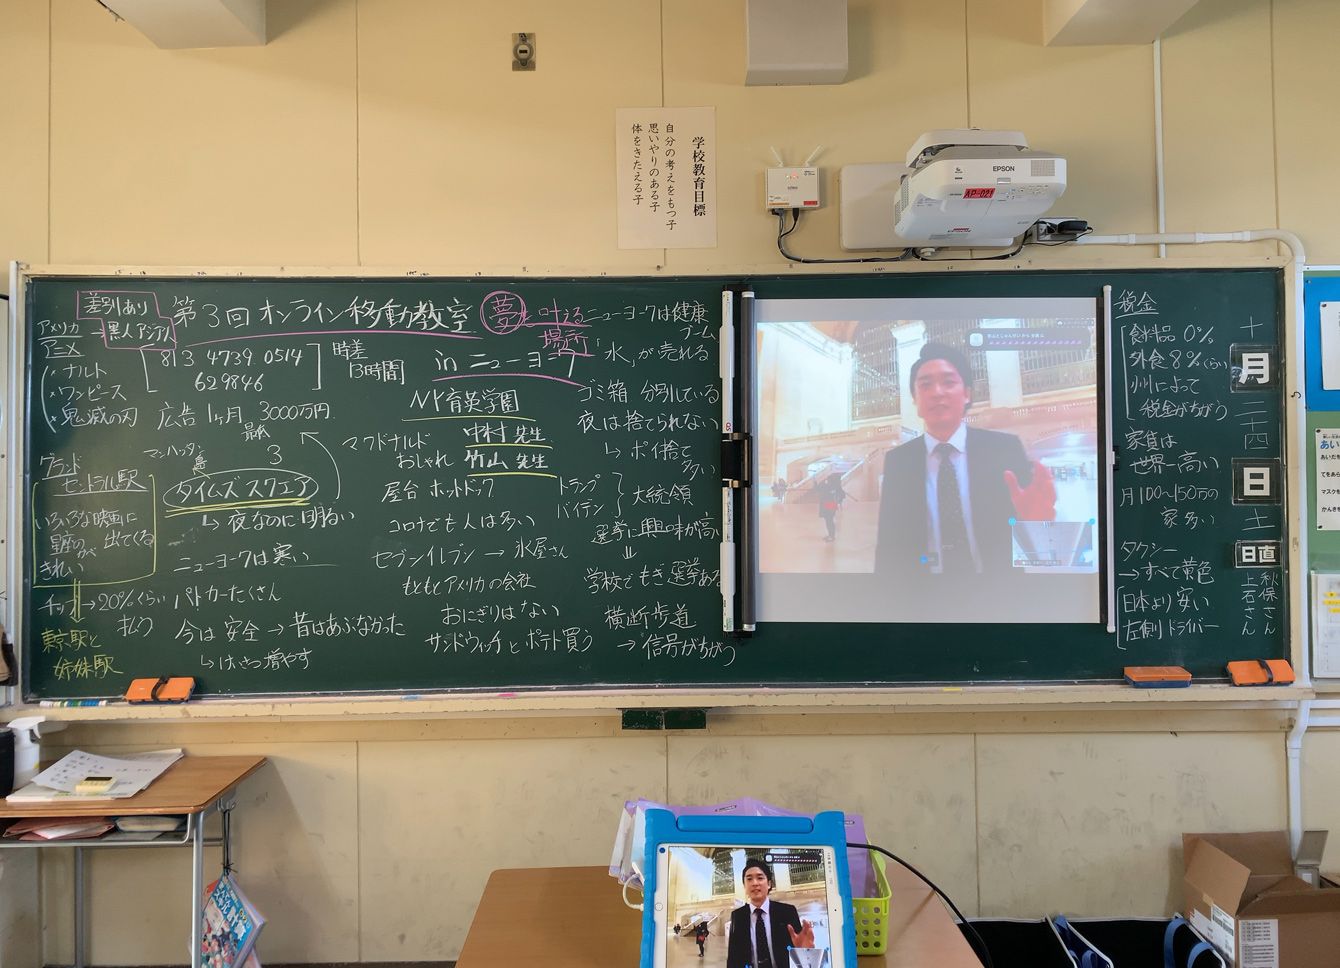 学校教育目標
自分の考えをもつ子
思いやりのある子
体をきたえる子
EPSON
AP-021
差別あり
黒人 アジア人
アメリカ
アニメ
ナルト
ワンピース
鬼滅の刃
グランド
セントラル駅
いろいろな映画に
出てくる
星座の
きれい
チップ→20%くらい
払う
東京駅と
姉妹駅
第3回 オンライン移動教室
夢を叶える
場所
in ニューヨーク
813 4739 0514
629846
時差
13時間
広告 1ヶ月 3000万円
最高
3
マンハッタン
島
タイムズ スクエア
↳ 夜なのに明るい
ニューヨークは寒い
パトカーたくさん
今は 安全 → 昔はあぶなかった
↳ けいさつ増やす
NY育英学園
中村 先生
竹山 先生
マクドナルド
おしゃれ
屋台 ホットドッグ
コロナでも人は多い
セブンイレブン → 氷屋さん
もともとアメリカの会社
おにぎりは ない
サンドウィッチとポテト買う
ニューヨークは健康
ブーム
「水」が売れる
ゴミ箱 分別している
夜は捨てられない
↳ ポイ捨て
多い
トランプ
バイデン
大統領
選挙に興味が高い
⇓
学校でもぎ選挙ある
横断歩道
→ 信号がちがう
税金
食料品 0%
外食 8%くらい
州によって
税金がちがう
家賃は
世界一高い
月100〜150万の
家 多い
タクシー
→すべて黄色
日本より安い
左側 ドライバー
十
月
二十四
日
土
日直
秋保さん
上石さん